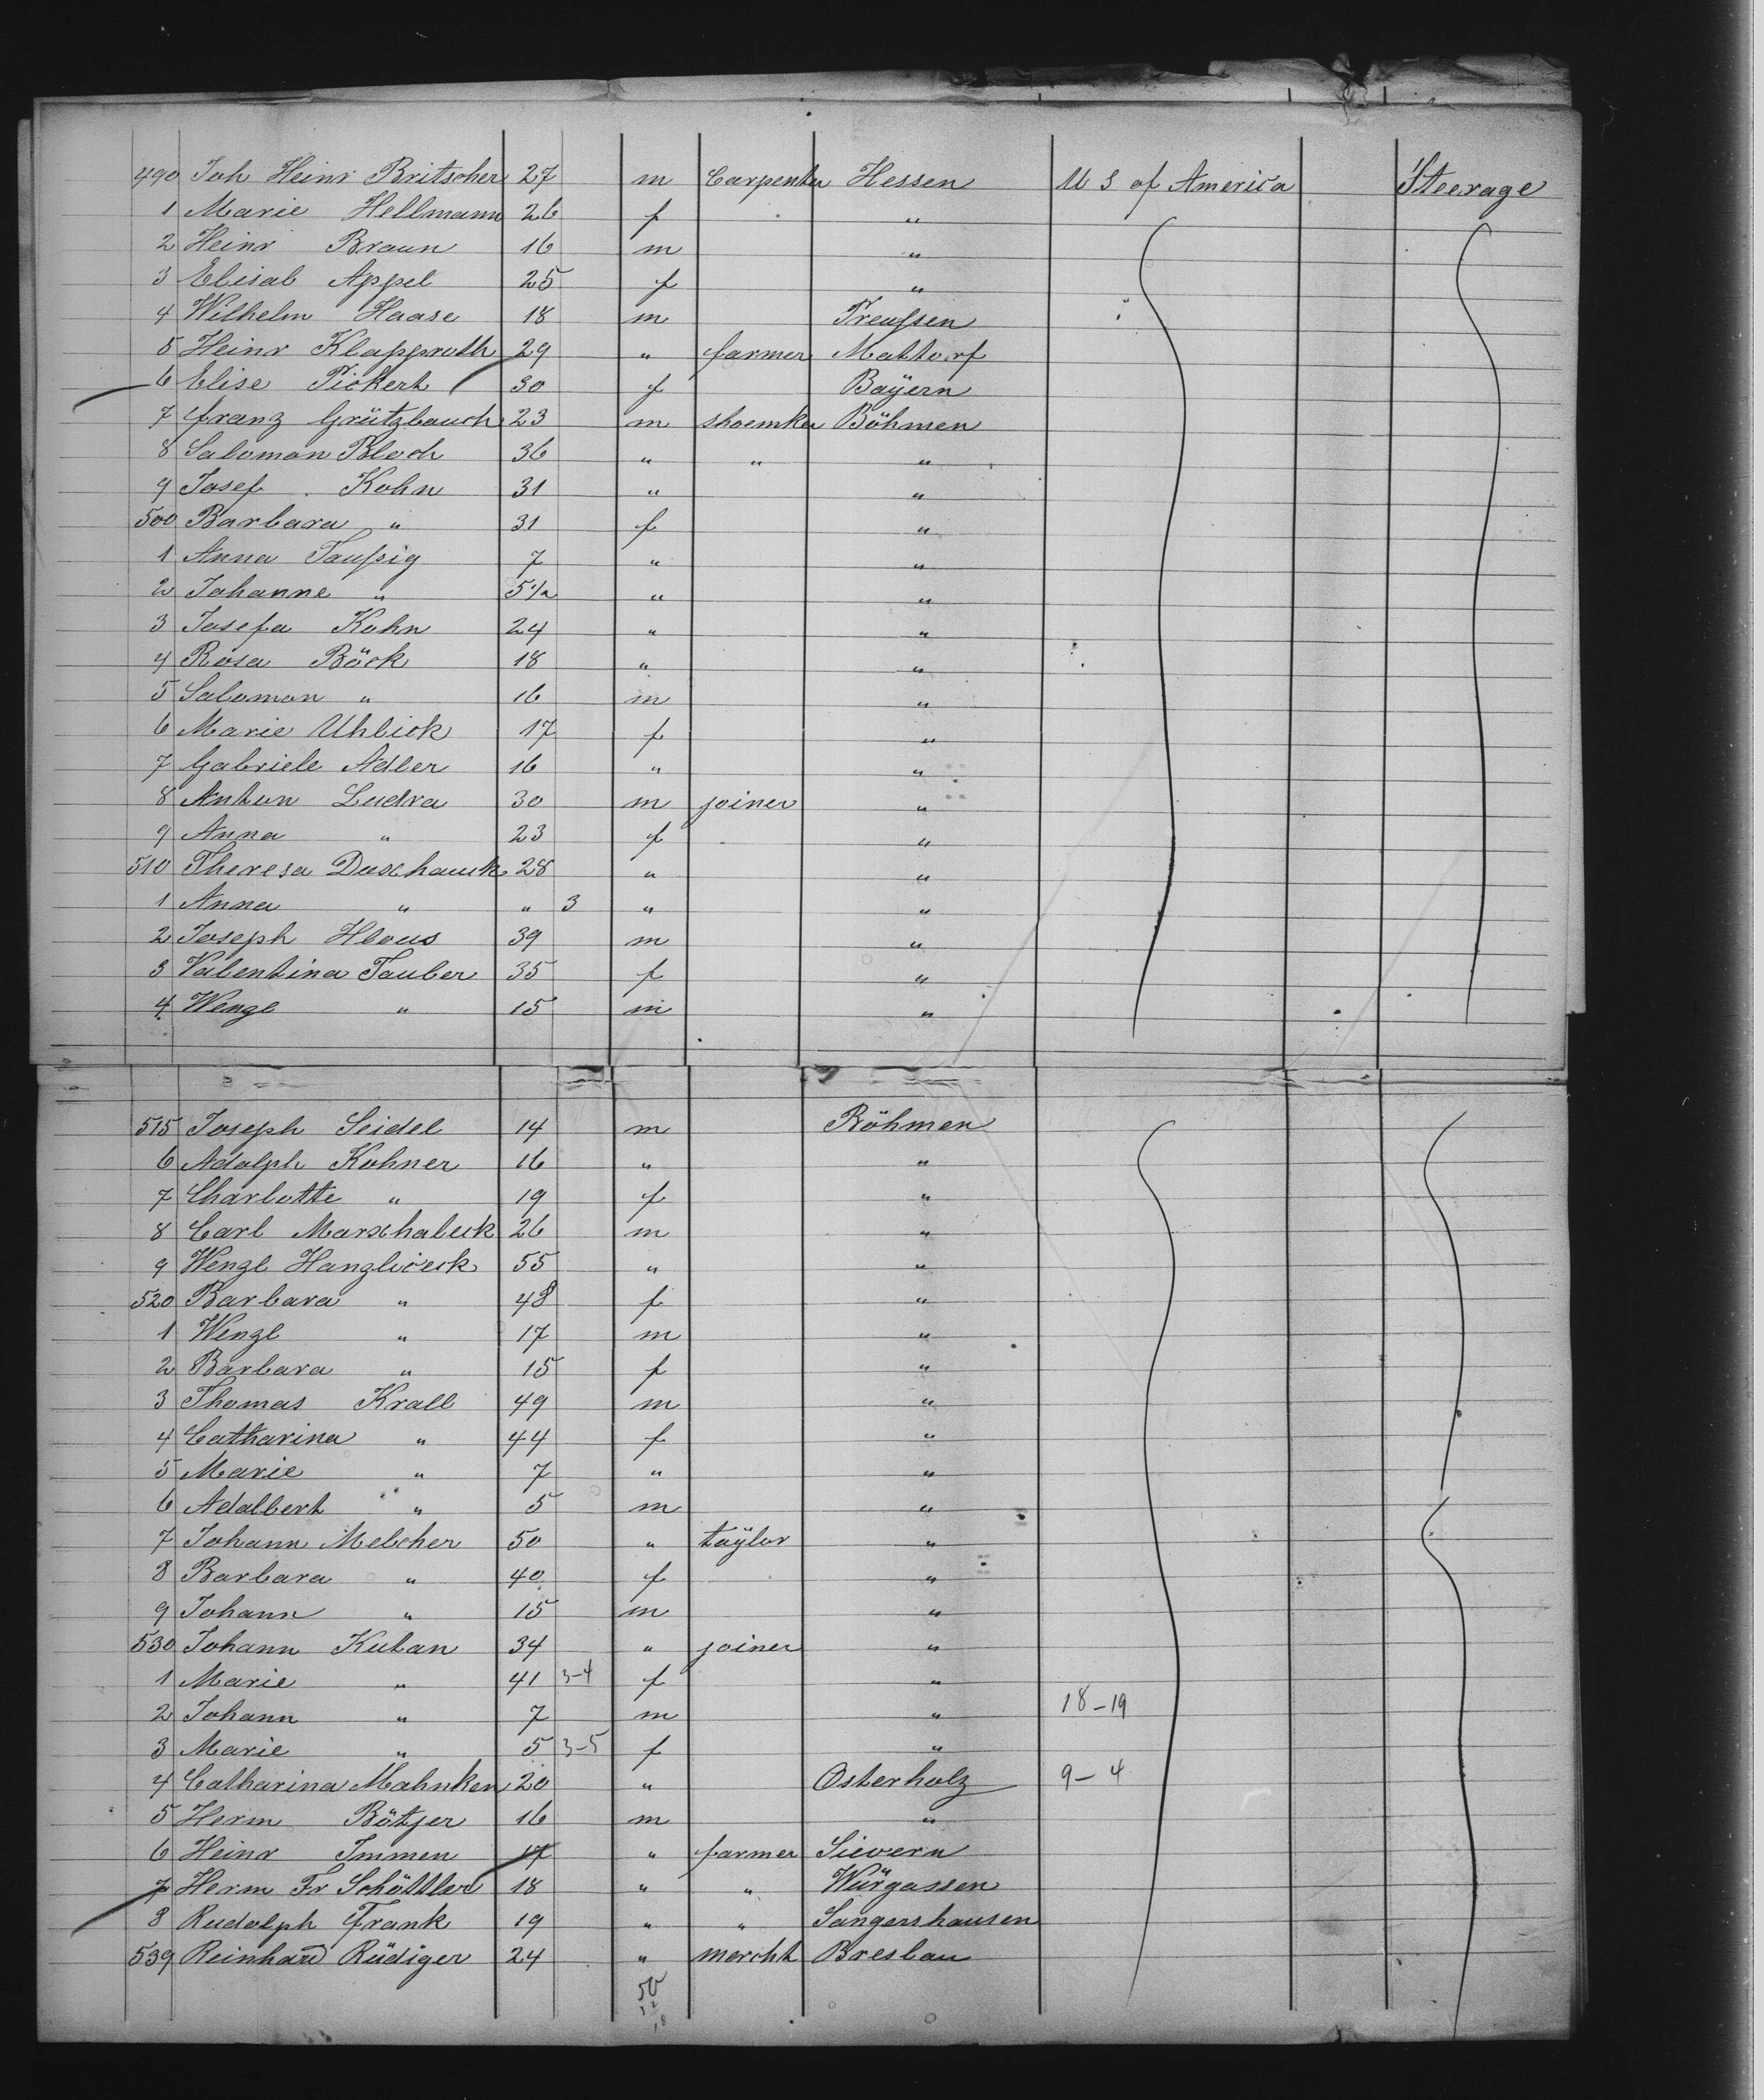 490 Joh Heinr Britscher 27 m Carpenter Hessen U S of America Steerage
1 Marie Hellmann 26 f "
2 Heinr Braun 16 m "
3 Elisab Appel 25 f "
4 Wilhelm Haase 18 m Preußen
5 Heinr Klapproth 29 " farmer Mattorf
6 Elise Pickert 30 f Bayern
7 Franz Grützbauch 23 m shoemker Böhmen
8 Salomon Bloch 36 " " "
9 Josef Kohn 31 " "
500 Barbara " 31 f "
1 Anna Taußig 7 " "
2 Johanne " 5 1/2 " "
3 Josefa Kohn 24 " "
4 Rosa Böck 18 " "
5 Salomon " 16 m "
6 Marie Uhlick 17 f "
7 Gabriele Adler 16 " "
8 Anton Ludva 30 m joiner "
9 Anna " 23 f "
510 Theresa Duschauck 28 " "
1 Anna " " 3 " "
2 Joseph Hlous 39 m "
3 Valentina Tauber 35 f "
4 Wenzl " 15 m "
515 Joseph Seidel 14 m Böhmen
6 Adolph Kohner 16 " "
7 Charlotte " 19 f "
8 Carl Marschaleck 26 m "
9 Wenzl Hanzliceck 55 " "
520 Barbara " 48 f "
1 Wenzl " 17 m "
2 Barbara " 15 f "
3 Thomas Krall 49 m "
4 Catharina " 44 f "
5 Marie " 7 " "
6 Adalbert " 5 m "
7 Johann Melcher 50 " taylor "
8 Barbara " 40 f "
9 Johann " 15 m "
530 Johann Kutan 34 " joiner "
1 Marie " 41 3-4 f "
2 Johann " 7 m " 18-19
3 Marie " 5 3-5 f "
4 Catharina Mahnken 20 " Osterholz 9-4
5 Herm Bötjer 16 m "
6 Heinr Immen 17 " farmer Sievern
7 Herm Fr Schöttler 18 " " Würgassen
8 Rudolph Frank 19 " " Sangershausen
539 Reinhard Rüdiger 24 " mercht Breslau
50